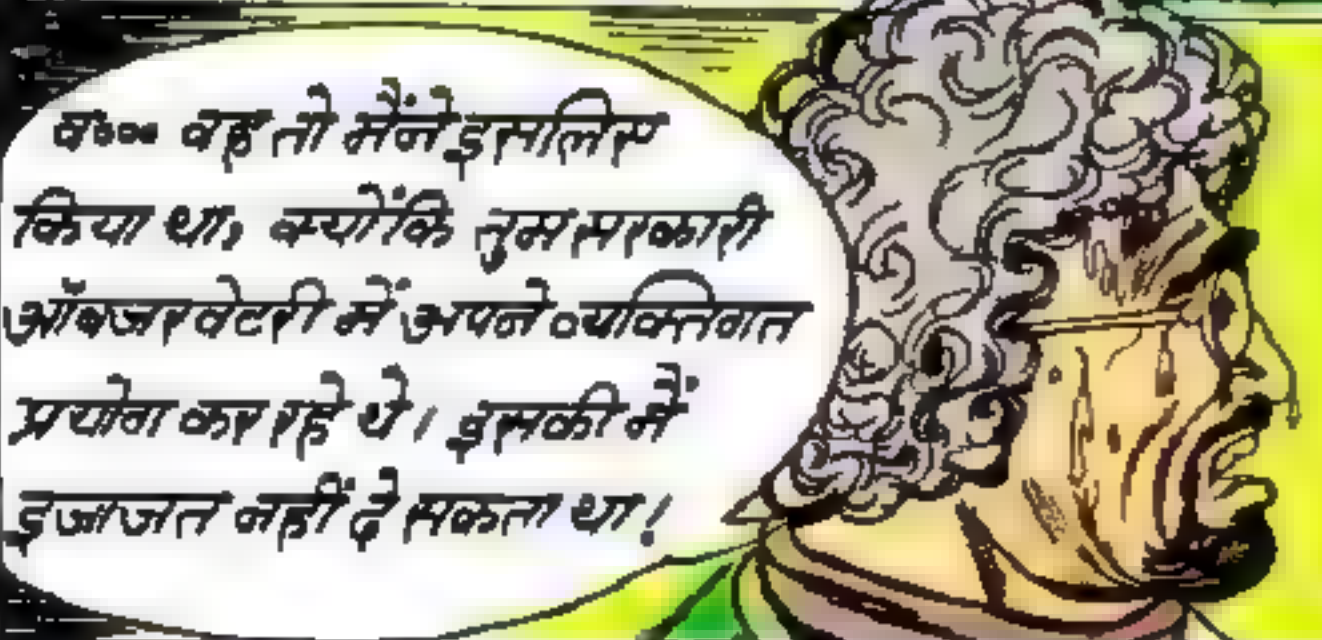 व... वह तो मैंने इसलिए
किया था, क्योंकि तुम सरकारी
ऑबजरवेटरी में अपने व्यक्तिगत
प्रयोग कर रहे थे। इसकी मैं
इजाजत नहीं दे सकता था!